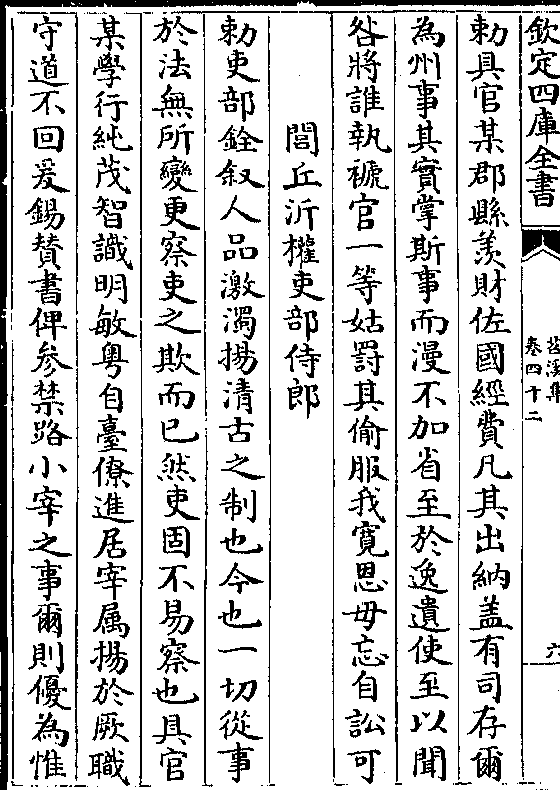 欽定四庫全書
苕溪集
卷四十二
六
勅具官某郡縣羨財佐國經費凡其出納盖有司存爾
為州事其實掌斯事而漫不加省至於逸遺使至以聞
咎將誰執褫官一等姑罸其偷服我寛恩毋忘自訟可
閭丘沂權吏部侍郎
勅吏部銓叙人品激濁揚清古之制也今也一切從事
於法無所變更察吏之欺而已然吏固不易察也具官
某學行純茂智識明敏粤自臺僚進居宰属揚於厥職
守道不回爰錫賛書俾參禁路小宰之事爾則優為惟